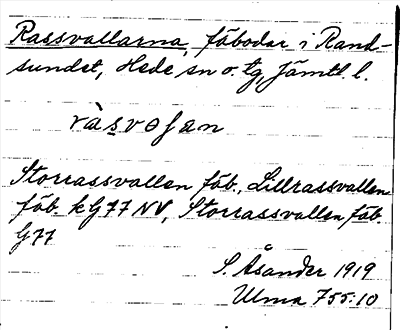 Rassvallarna, fäbodar i Rand-
sundet, Hede sn o. tg, Jämtl. l.
ràsvoʃan
Storrassvallen fäb., Lillrassvallen
fäb. k G77 NV, Storrassvallen fäb.
G77
S. Åsander 1919
Ulma 755:10